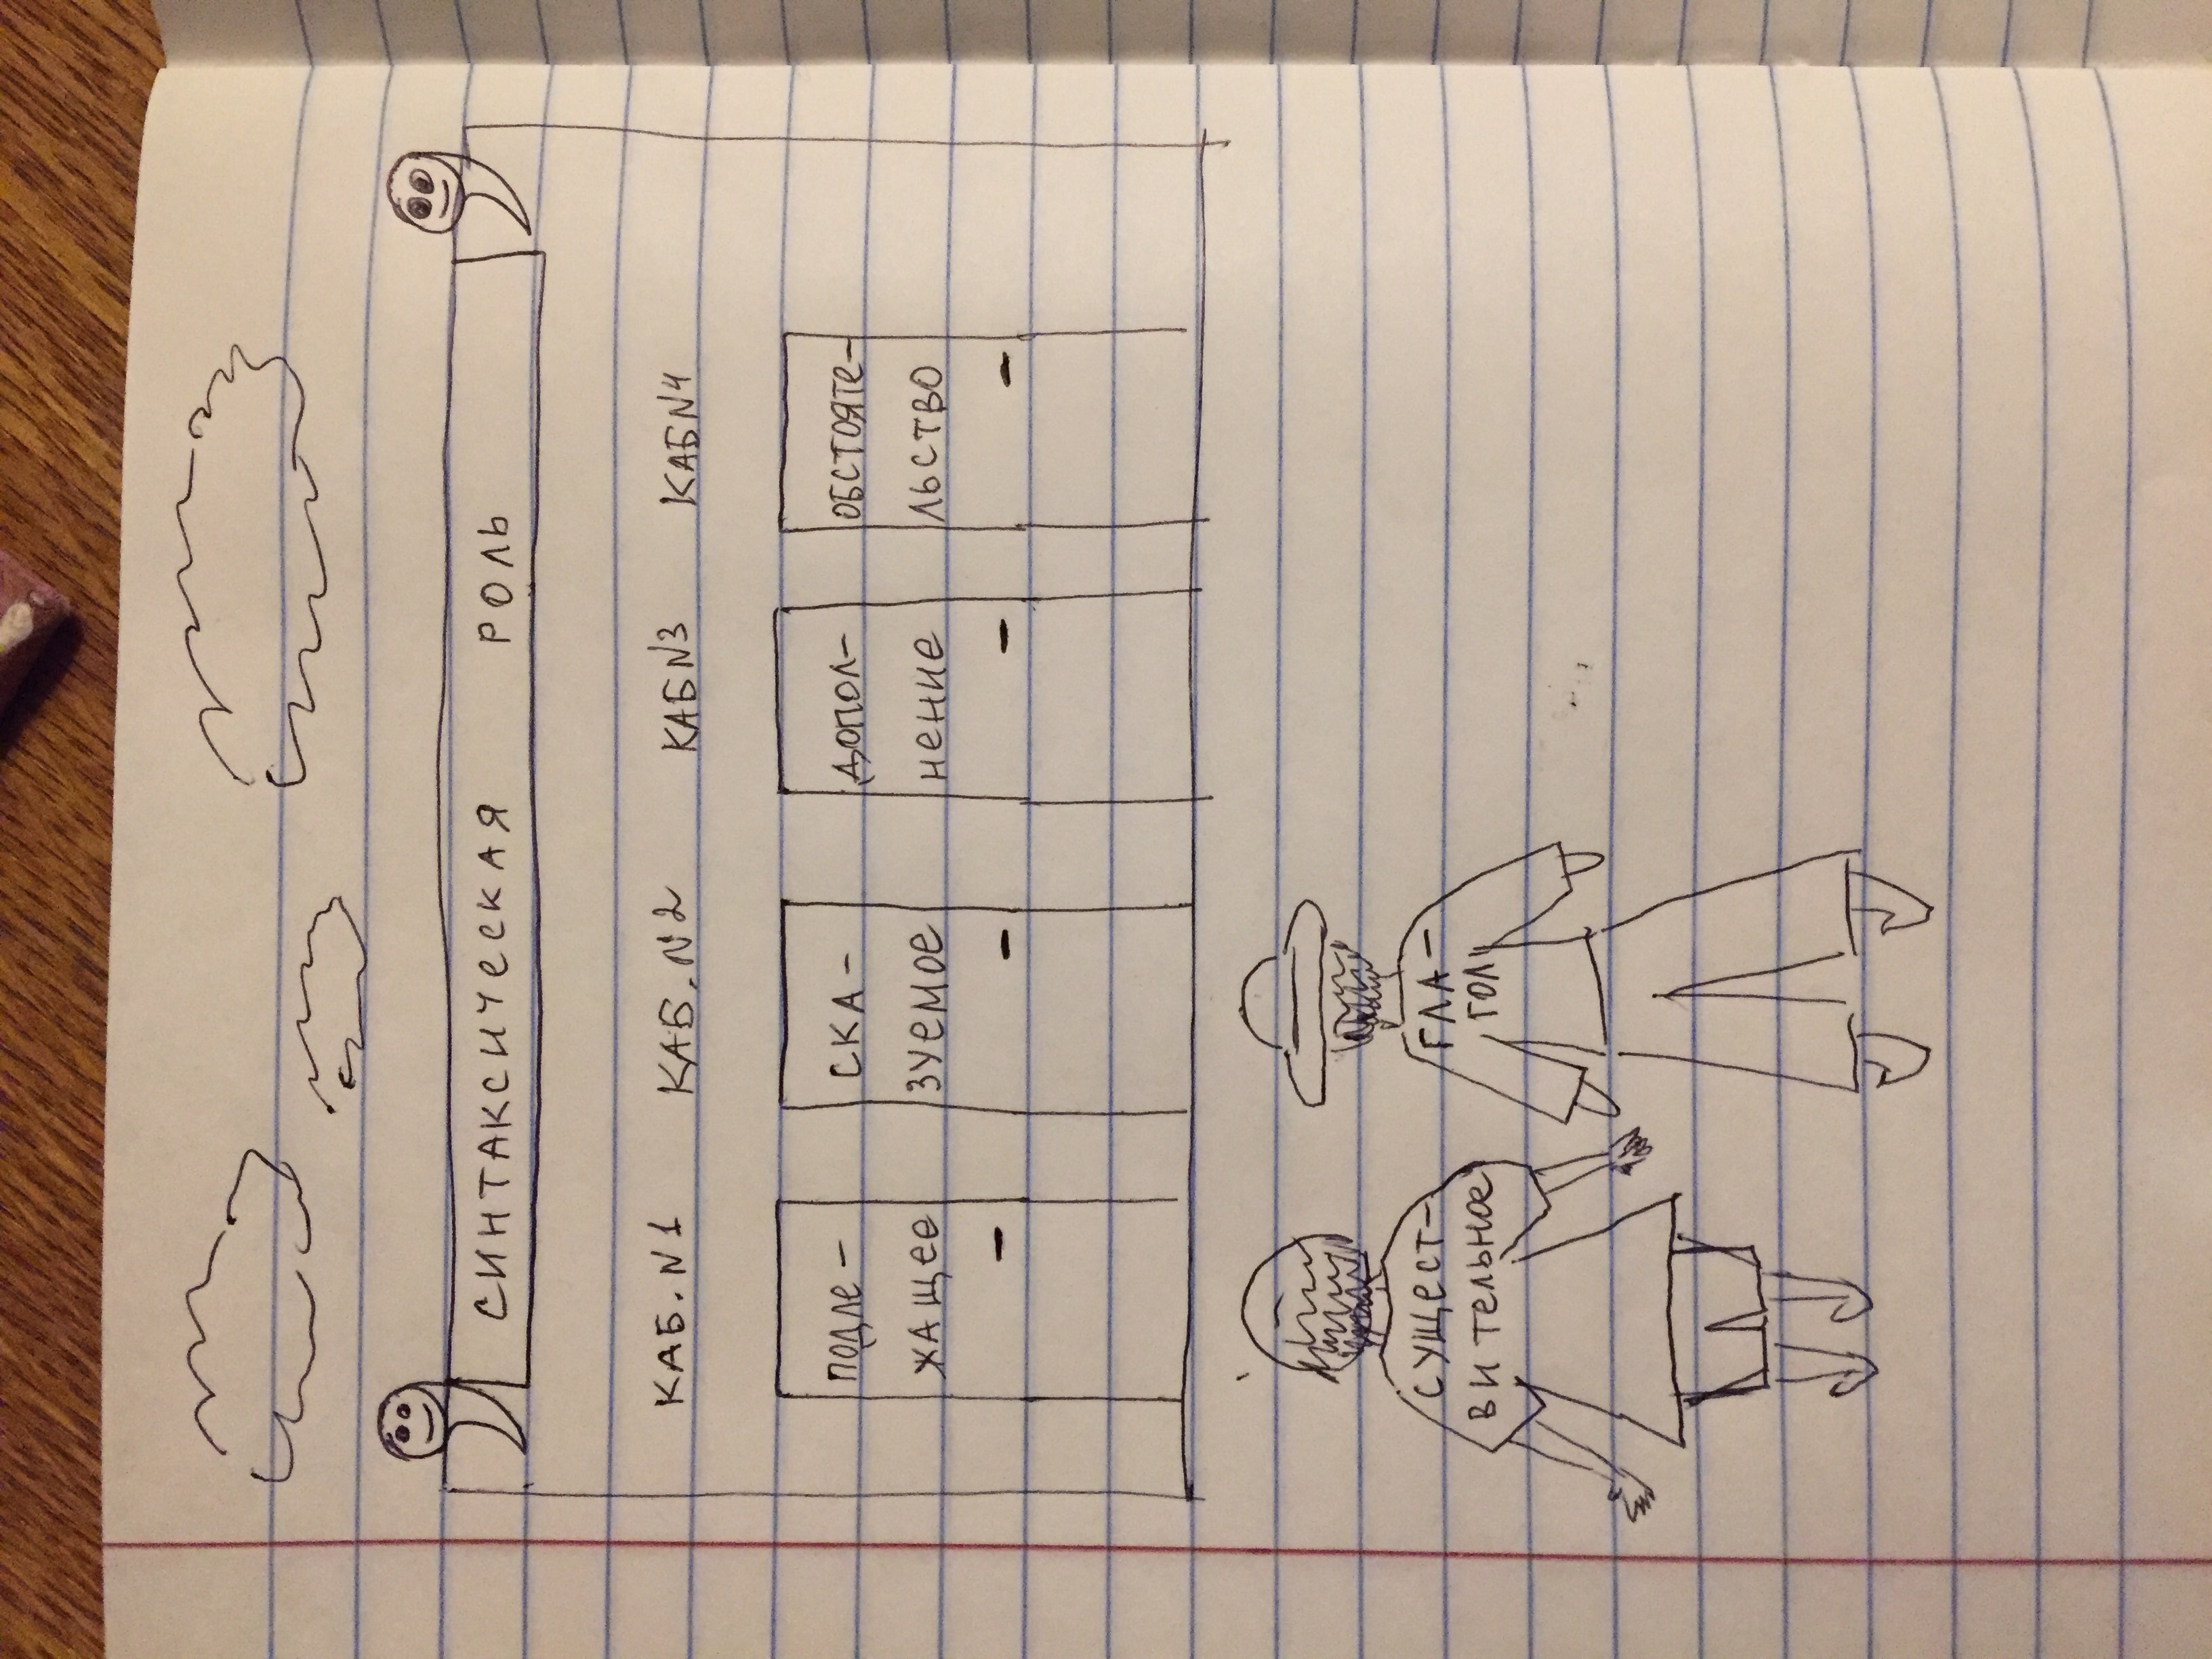 СИНТАКСИЧЕСКАЯ РОЛЬ
КАБ. N 1 КАБ. N 2 КАБ N3 КАБ N4
ПОДЛЕ-
ЖАЩЕЕ
СКА-
ЗУЕМОЕ
ДОПОЛ-
НЕНИЕ
ОБСТОЯТЕ-
ЛЬСТВО
СУЩЕСТ-
ВИТЕЛЬНОЕ
ГЛА-
ГОЛ